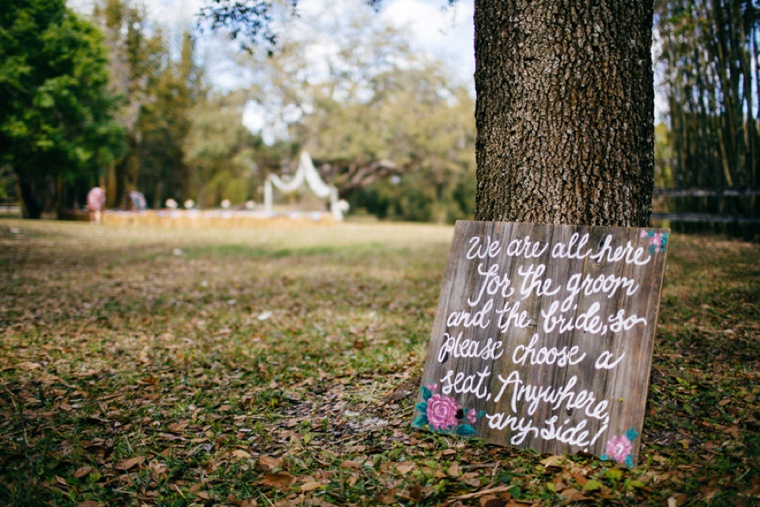 We are all here
for the groom
and the bride, so
please choose a
seat, Anywhere,
any side!